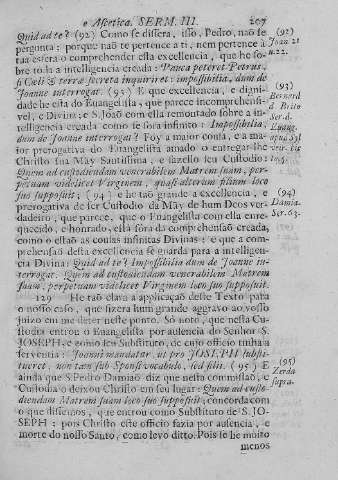 e Ascetica. SERM. III. 207
Quid ad te? (92) Como se dissera, isso, Pedro, naõ te
pergunta: porque naõ te pertence a ti, nem pertence á
tua esfera o comprehender esta excellencia, que he so-
bre toda a intelligencia creada: Pauca poteret Petrus,
si Cœli & terræ secreta inquireret: impossibilia, dum de
Joanne interrogat. (93) E que excellencia, e digni-
dade he esta do Euangelista, que parece incomprehensi-
vel, e Divina; e S. Joaõ com ella remontado sobre a in-
telligencia creada como se fora infinito: Impossibilia:
dum de Joanne interrogat? Foy a maior consa, e a ma-
ior prerogativa do Euangelista amado o entregar-lhe
Christo sua May Santissima, e fazello seu Custodio:
Quem ad custodiendam venerabilem Matrem suam, per-
petuam videlicet Virginem, quasi alterum filium loco
suo supposuit; (94) e he taõ grande a excellencia, e
prerogativa de ser Custodio da May de hum Deos ver-
dadeiro, que parece, que o Euangelista com ella enre-
quecido, e honrado, está fóra da comprehensaõ creada,
como o estaõ as cousas infinitas Divinas: e que a com-
prehensaõ desta excellencia se guarda para a intelligen-
cia Divina: Quid ad te? Impossibilia dum de Joanne in-
terrogat. Quem ad custodiendam venerabilem Matrem
suam, perpetuam videlicet Virginem loco suo supposuit.
129 He taõ clava a applicaçaõ deste Texto para
o nosso caso, que fizera hum grande aggravo ao vosso
juizo em me deter neste ponto. Só noto, que nesta Cu-
stodia entrou o Euangelista por ausencia do Senhor S.
JOSEPH, e como seu Substituto, de cujo officio tinha a
serventia: Joanni mandatur, ut pro JOSEPH substi-
tueret, non tam sub Sponsi vocabulo, sed filii. (95) E
ainda que S. Pedro Damiaõ diz que nesta commissaõ, e
Custodia o deixou Christo em seu lugar: Quem ad custo-
diendam Matrem suam loco suo supposuit; concorda com
o que dissemos, que entrou como Substituto de S. JO-
SEPH: pois Christo este officio fazia por ausencia, e
morte do nosso Santo, como levo ditto. Pois se he muito
menos
(92)
Joan. 21
n. 22.
(93)
Bernard.
d. Brito
Ser. d.
Euang.
(94)
Damia.
Ser. 63.
(95)
Zerda
supra.